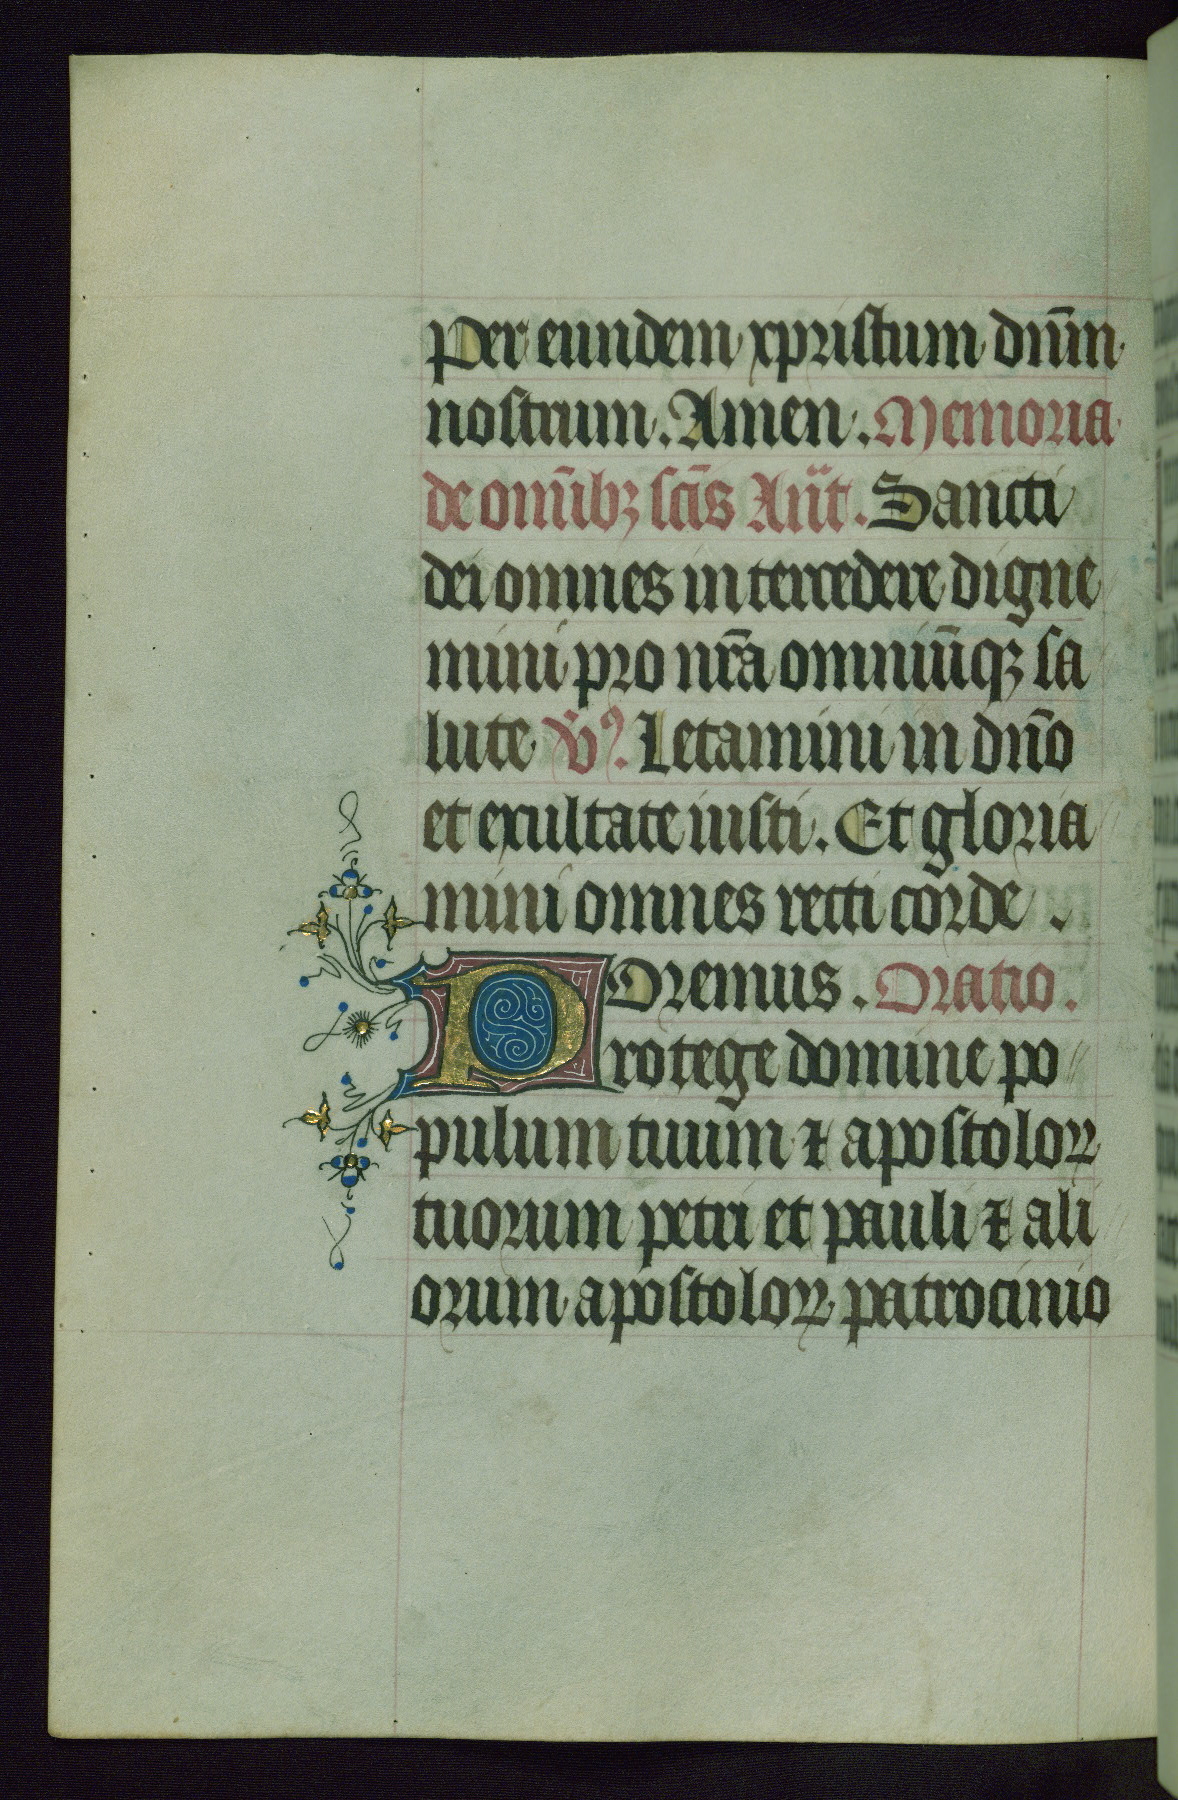 Per eundem xpristum dnm̄
nostrum. Amen. Memoria
de omībꝫ scīs Anͣt. Sancti
dei omnes intercedere digne
mini pro nrā omniūqꝫ sa
lute ℣. Letamini in dnō
et exultate iusti. Et gloria
mini omnes recti corde.
Oremus. Oratio.
Protege domine po
pulum tuum ⁊ apostoloꝝ
tuorum petri et pauli ⁊ ali
orum apostoloꝝ patrocinio